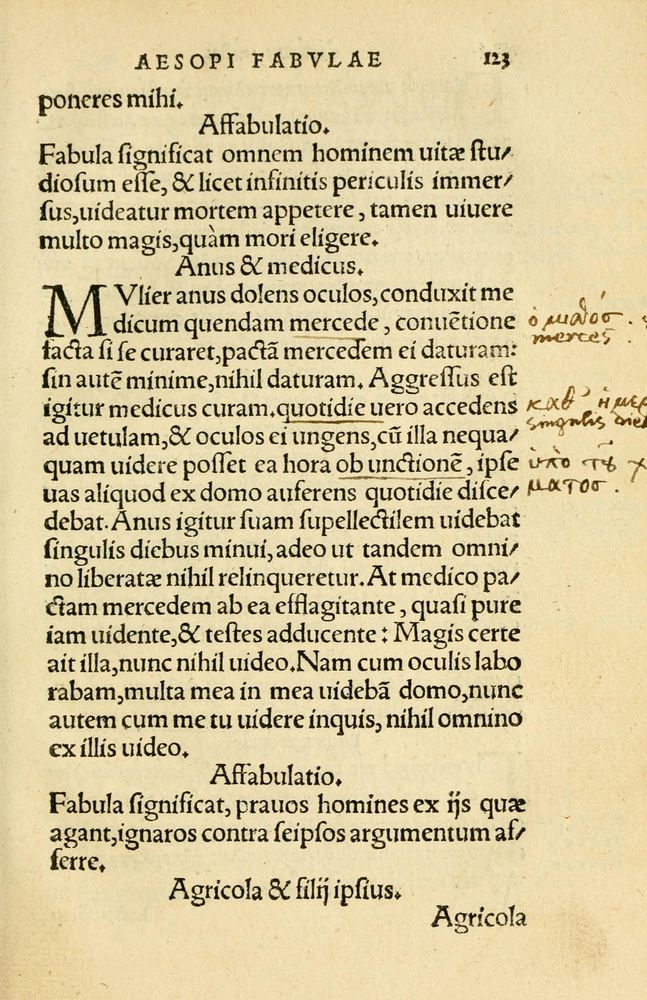 AESOPI FABVLAE 123
poneres mihi.
Affabulatio.
Fabula ſignificat omnem hominem uitæ ſtu/
dioſum eſſe, & licet infinitis periculis immer/
ſus,uideatur mortem appetere, tamen uiuere
multo magis,quàm mori eligere.
Anus & medicus.
MVlier anus dolens oculos,conduxit me
dicum quendam mercede, conuētione
facta ſi ſe curaret,pactā mercedem ei daturam:
ſin autē minime,nihil daturam. Aggreſſus eſt
igitur medicus curam.quotidie uero accedens
ad uetulam,& oculos ei ungens,cū illa nequa/
quam uidere poſſet ea hora ob unctionē, ipſe
uas aliquod ex domo auferens quotidie diſce/
debat. Anus igitur ſuam ſupellectilem uidebat
ſingulis diebus minui, adeo ut tandem omni/
no liberatæ nihil relinqueretur. At medico pa/
ctam mercedem ab ea efflagitante, quaſi pure
iam uidente,& teſtes adducente: Magis certe
ait illa,nunc nihil uideo.Nam cum oculis labo
rabam,multa mea in mea uidebā domo,nunc
autem cum me tu uidere inquis, nihil omnino
ex illis uideo.
Affabulatio.
Fabula ſignificat, prauos homines ex ijs quæ
agant,ignaros contra ſeipſos argumentum aſ/
ferre.
Agricola & filij ipſius.
Agricola
ὁ μισθοσ.
merces
καθ' ἡμερ
singulis die
ὑπο τȣ χ
ματοσ.